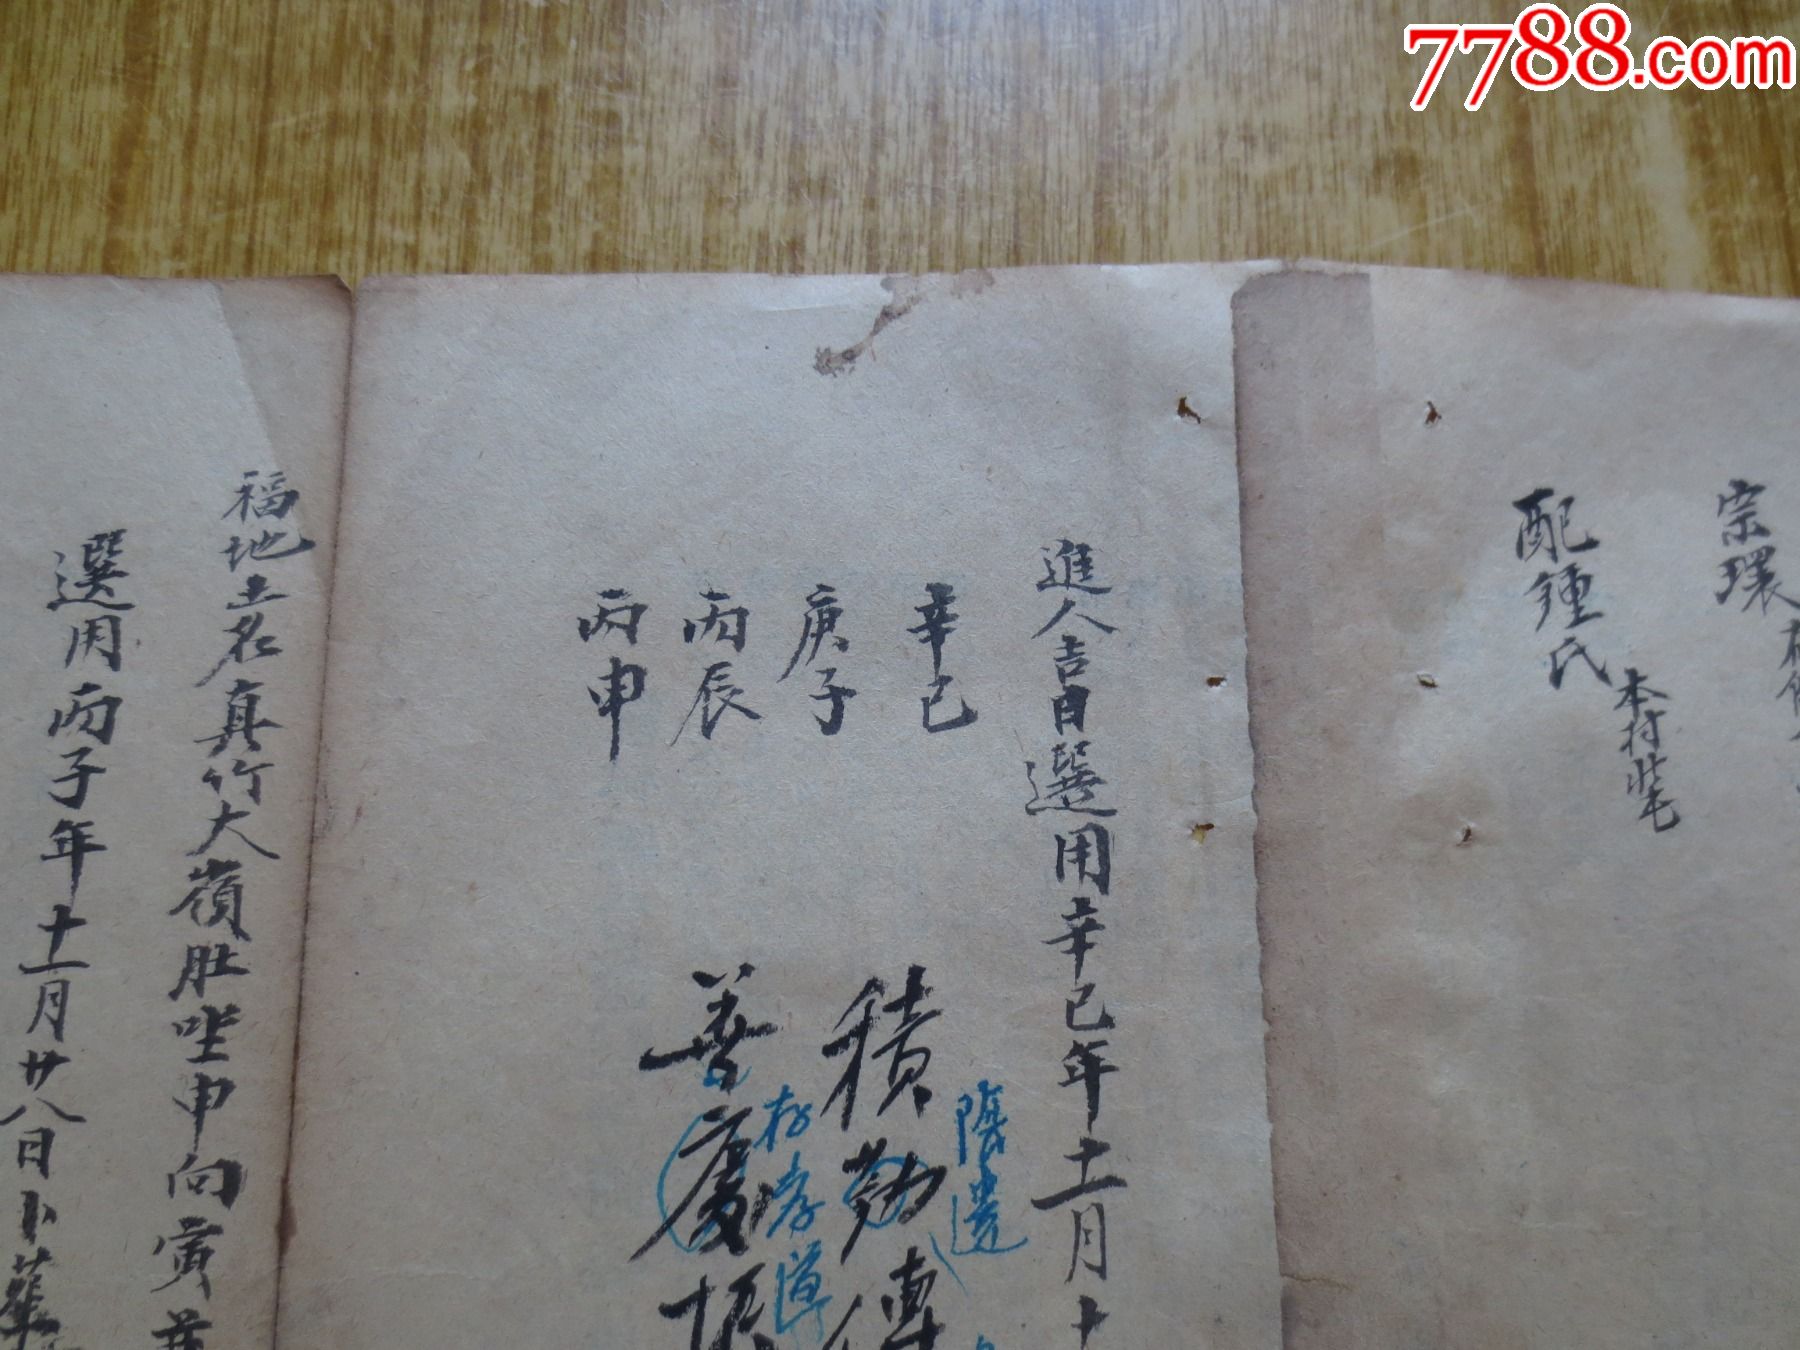 7788.com
宗環
配鍾氏 本村
進人吉日選用辛巳年十一月十
辛巳
庚子
丙辰
丙申
積勤傳
善慶振
陰遺
存孝導
福地土名真竹大嶺肚坐申向寅
選用丙子年十一月廿八日卜葬